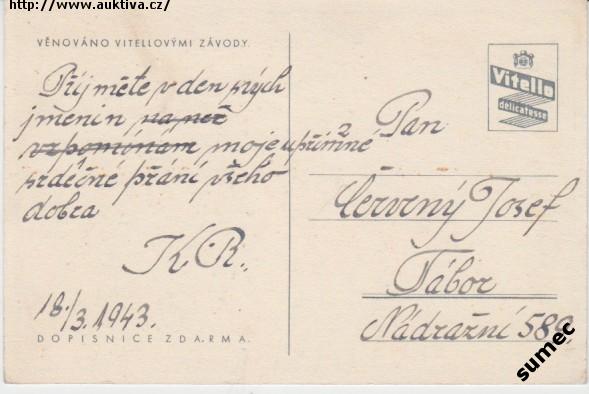 http://www.auktiva.cz/
VĚNOVÁNO VITELLOVÝMI ZÁVODY.
Přijměte v den svých
jmenin na něž
vzpomínám moje upřímné
srdečné přání všeho
dobra
K.R.
18./3.1943.
DOPISNICE ZDARMA.
Vitello
delicatesse
Pan
Červený Josef
Tábor
Nádražní 589
sumec